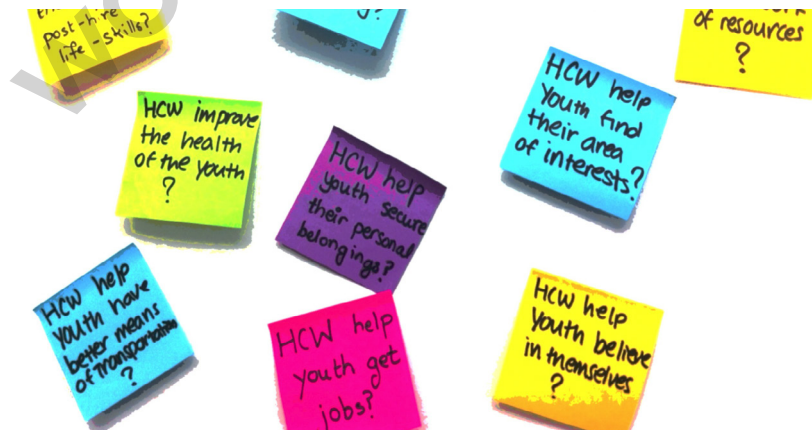 post-hire
life-skills?
of resources
?
HCW improve
the health
of the youth
?
HCW help
youth secure
their personal
belongings?
HCW help
Youth find
their area
of interests?
HCW help
youth have
better means
of transportation
?
HCW help
youth get
jobs?
HCW help
Youth believe
in themselves
?